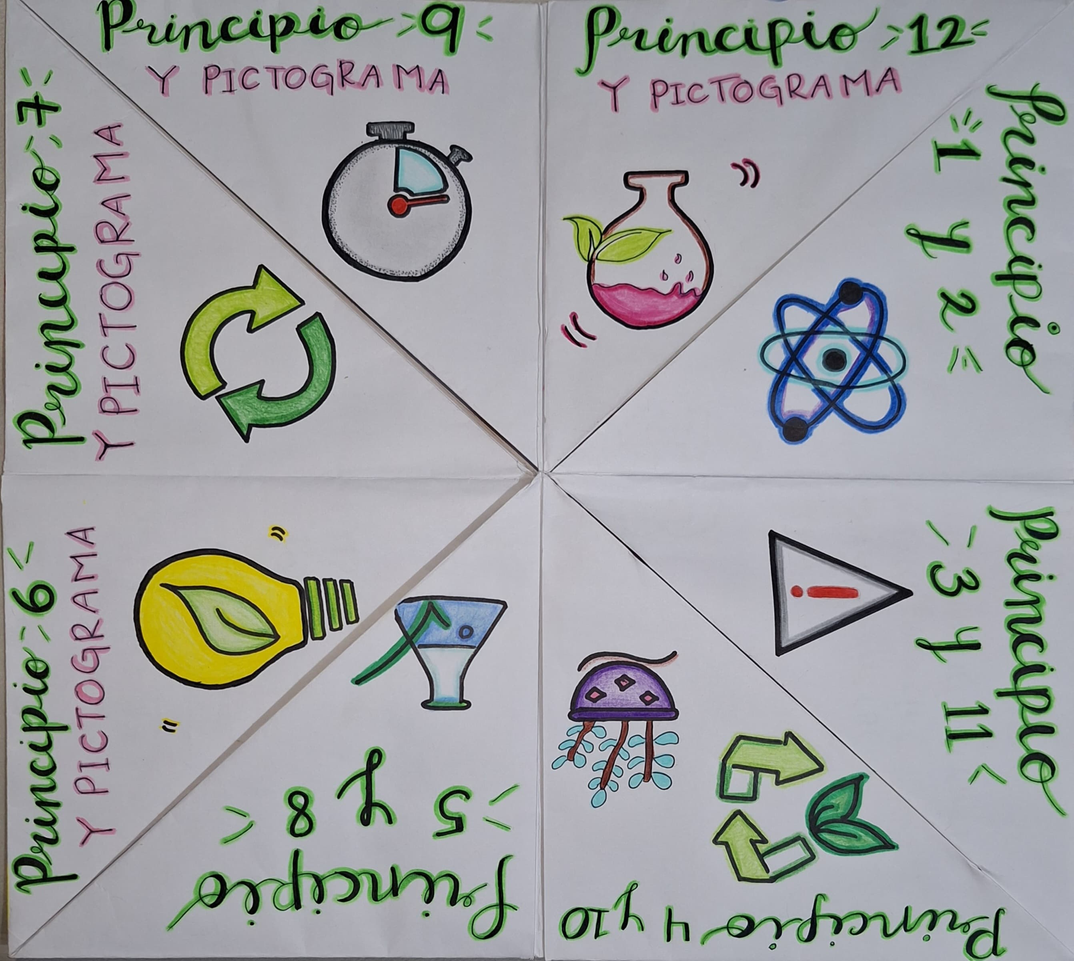 Principio 9
Y PICTOGRAMA
Principio 12
Y PICTOGRAMA
Principio
1 y 2
Principio
3 y 11
Principio 4 y 10
Principio
5 y 8
Principio 6
Y PICTOGRAMA
Principio 7
Y PICTOGRAMA